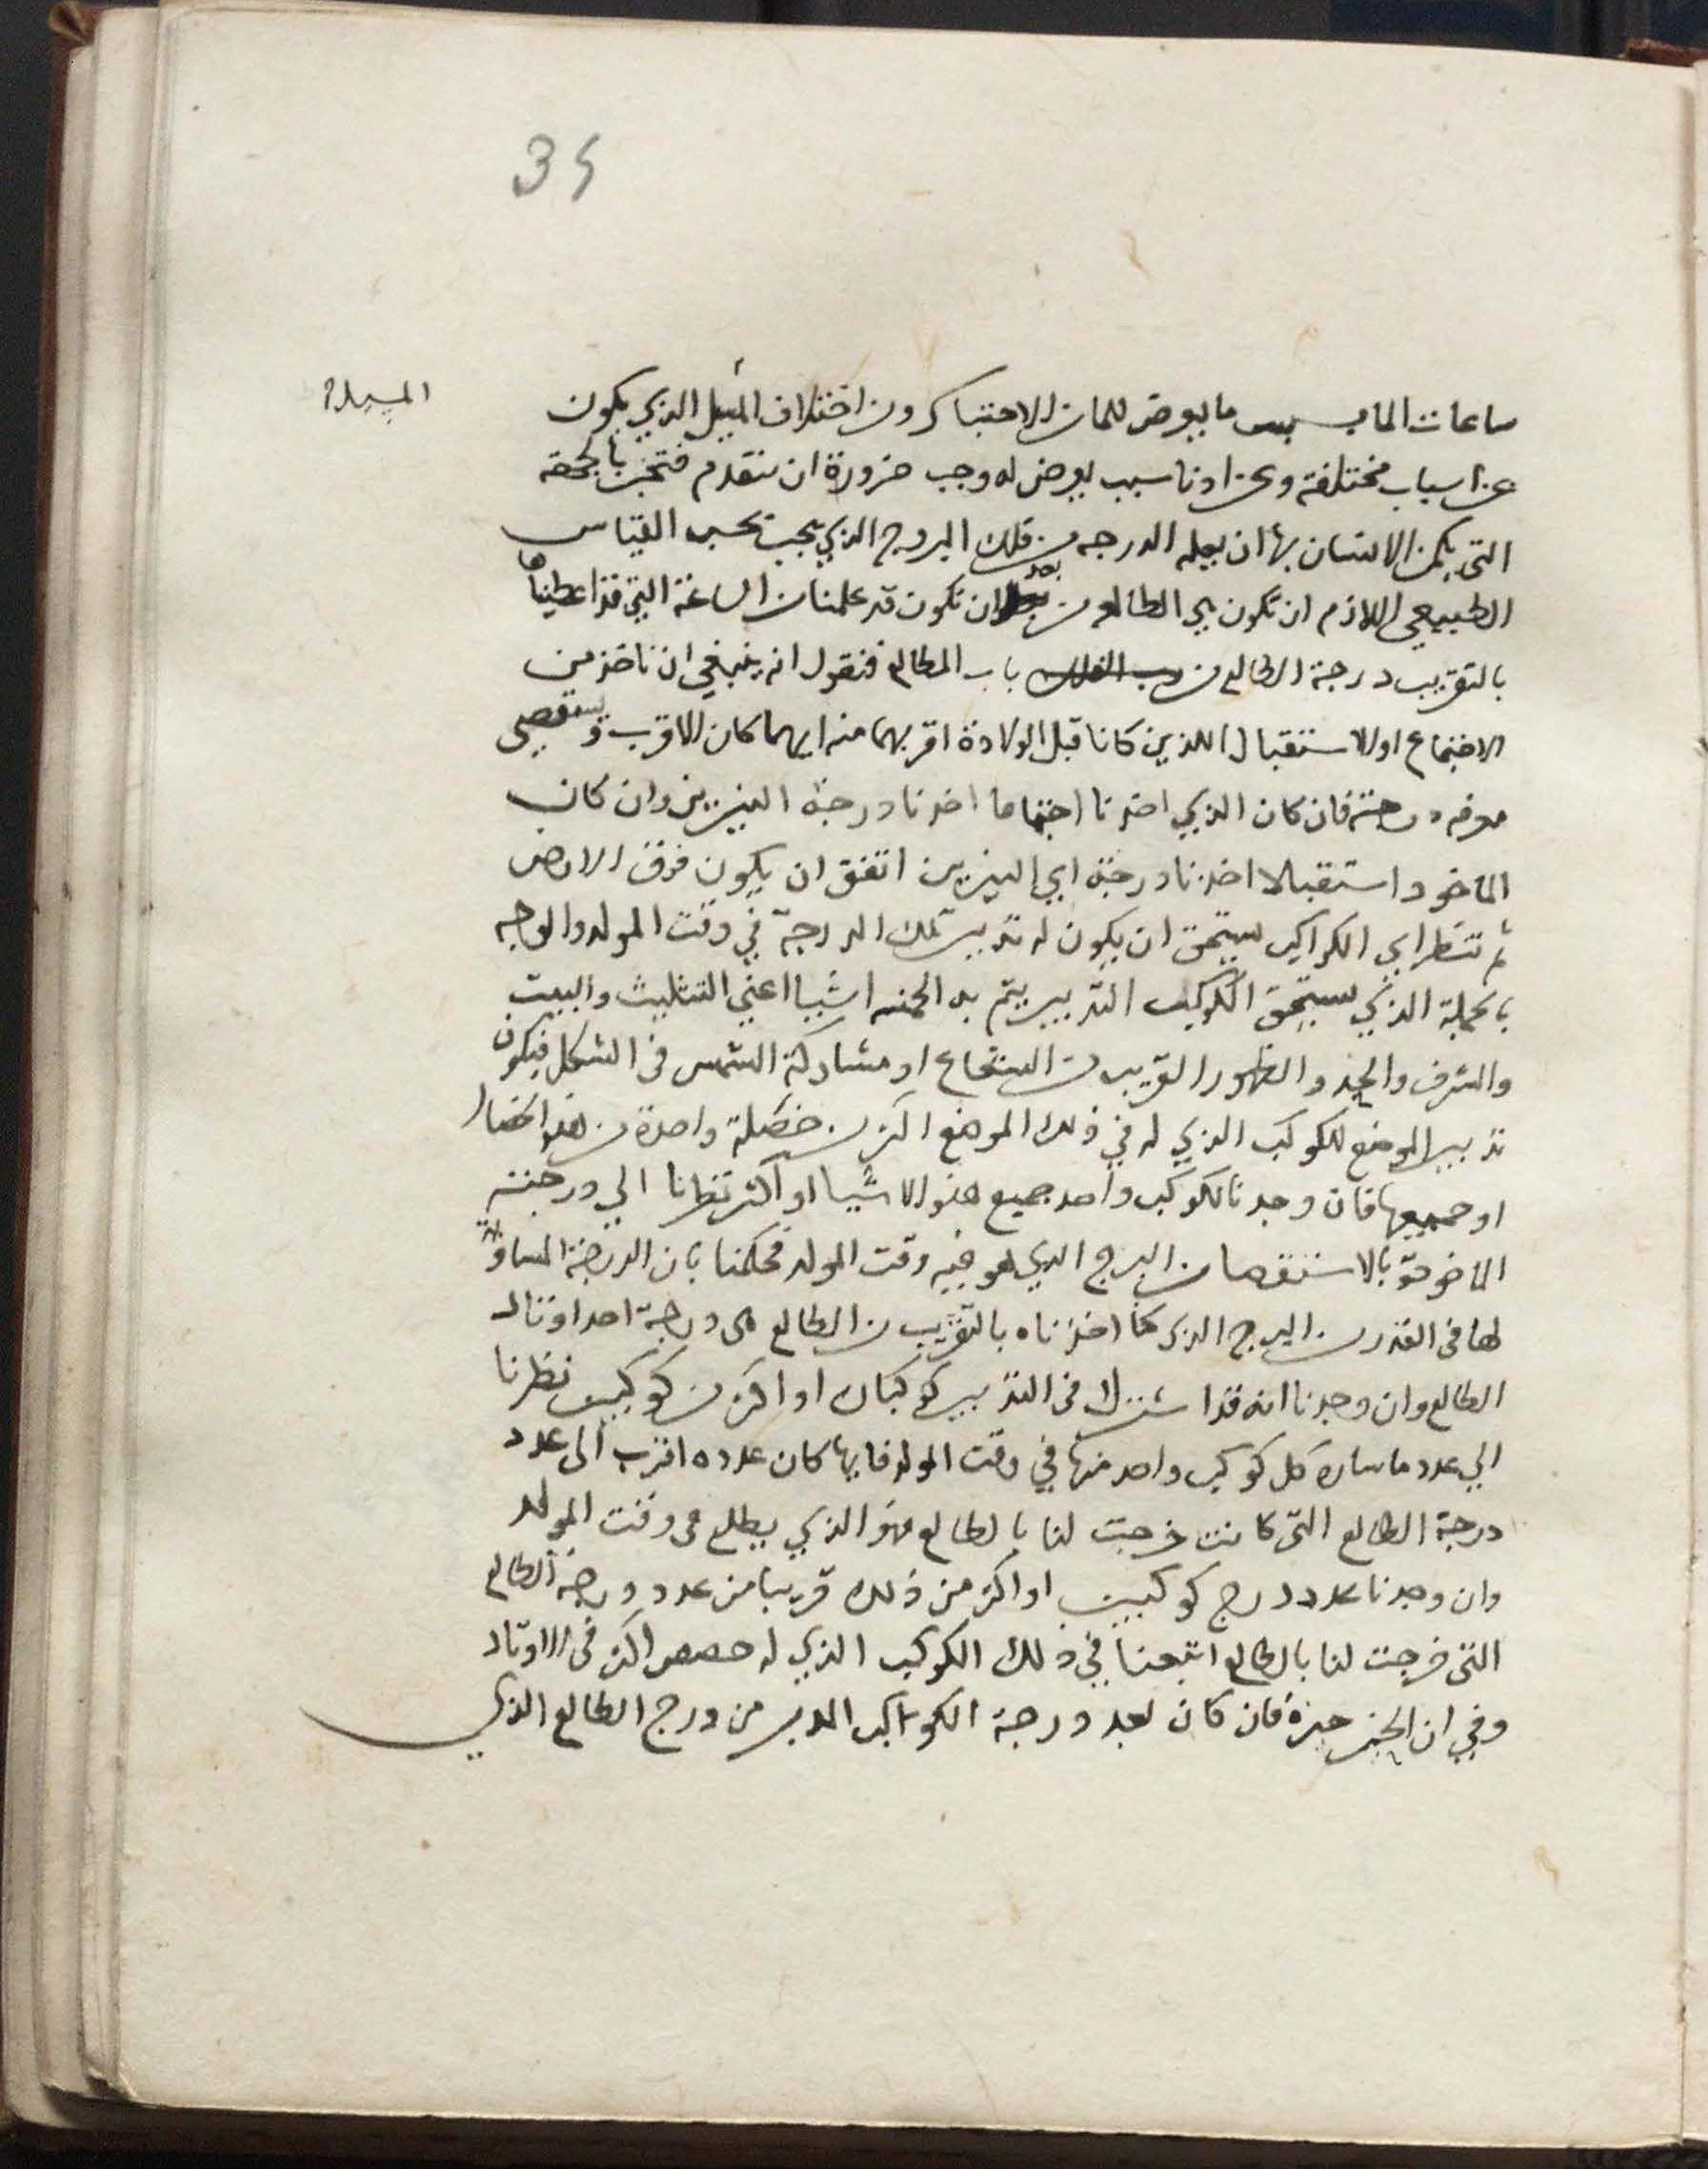 35
المسيله
ساعات الما بسبب ما يعرض للما من الاحتباس ومن اختلاف المسيل الذي يكون
عن اسباب مختلفة وعن ادنا سبب يعرض له وجب ضرورة ان نتقدم فنخبر بالجهة
التي يمكن الانسان بها ان يعلم الدرجه من فلك البروج الذي يجب بحسب القياس
الطبيعي اللازم ان تكون هي الطالعه من بعد ان تكون قد علمنا من الساعة التي قد اعطيناها
بالتقريب درجة الطالع من باب المطالع فنقول انه ينبغي ان ناخذ من
الاجتماع او الاستقبال اللذين كانا قبل الولادة اقربهما منه ايهما كان الاقرب ونستقصي
معرفه درجته فان كان الذي اخذنا اجتماعا اخذنا درجة النيرين وان كان
الماخوذ استقبالا اخذنا درجة اي النيرين اتفق ان يكون فوق الارض
ثم ننظر اي الكواكب يستحق ان يكون له تدبير تلك الدرجة في وقت المولد والوجه
بالجملة الذي يستحق الكوكب التدبير يتم به الخمسه اشيا اعني التثليث والبيت
والشرف والحد والظهور القريب من الشعاع او مشاركة الشمس في الشكل فيكون
تدبير الموضع للكوكب الذي له في ذلك الموضع اكثر من خصلة واحدة من هذه الخصال
او جميعها فان وجدنا لكوكب واحد جميع هذه الاشيا او اكثر نظرنا الي درجته
الماخوذة بالاستقصا من البرج الذي هو فيه وقت المولد فحكمنا بان الدرجة المساوية
لها في القدر من البرج الذي كنا اخذناه بالتقريب من الطالع هي درجة احد اوتاد
الطالع وان وجدنا انه قد اشترك في التدبير كوكبان او اكثر من كوكبين نظرنا
الي عدد ما ساره كل كوكب واحد منها في وقت المولد فايها كان عدده اقرب الى عدد
درجة الطالع التي كانت خرجت لنا بالطالع فهو الذي يطلع في وقت المولد
وان وجدنا عدد درج كوكبين او اكثر من ذلك قريبا من عدد درجة الطالع
التي خرجت لنا بالطالع اتبعنا في ذلك الكوكب الذي له حصص اكثر في الاوتاد
وفي ان الحيز حيزه فان كان بعد درجة الكوكب المدبر من درج الطالع الذي